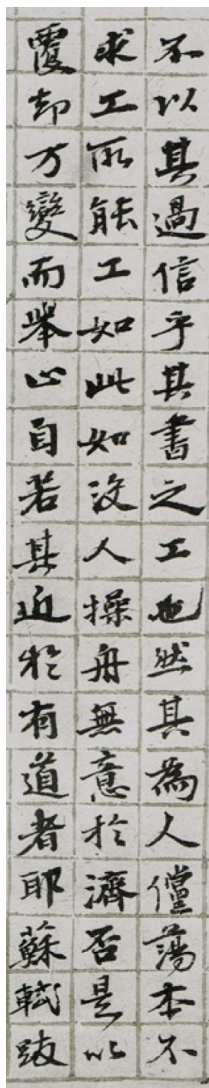 不以其過信乎其書之工也然其為人儻蕩本不
求工所能工如此如沒人操舟無意於濟否是以
覆却万變而舉止自若其近於有道者耶蘇軾跋